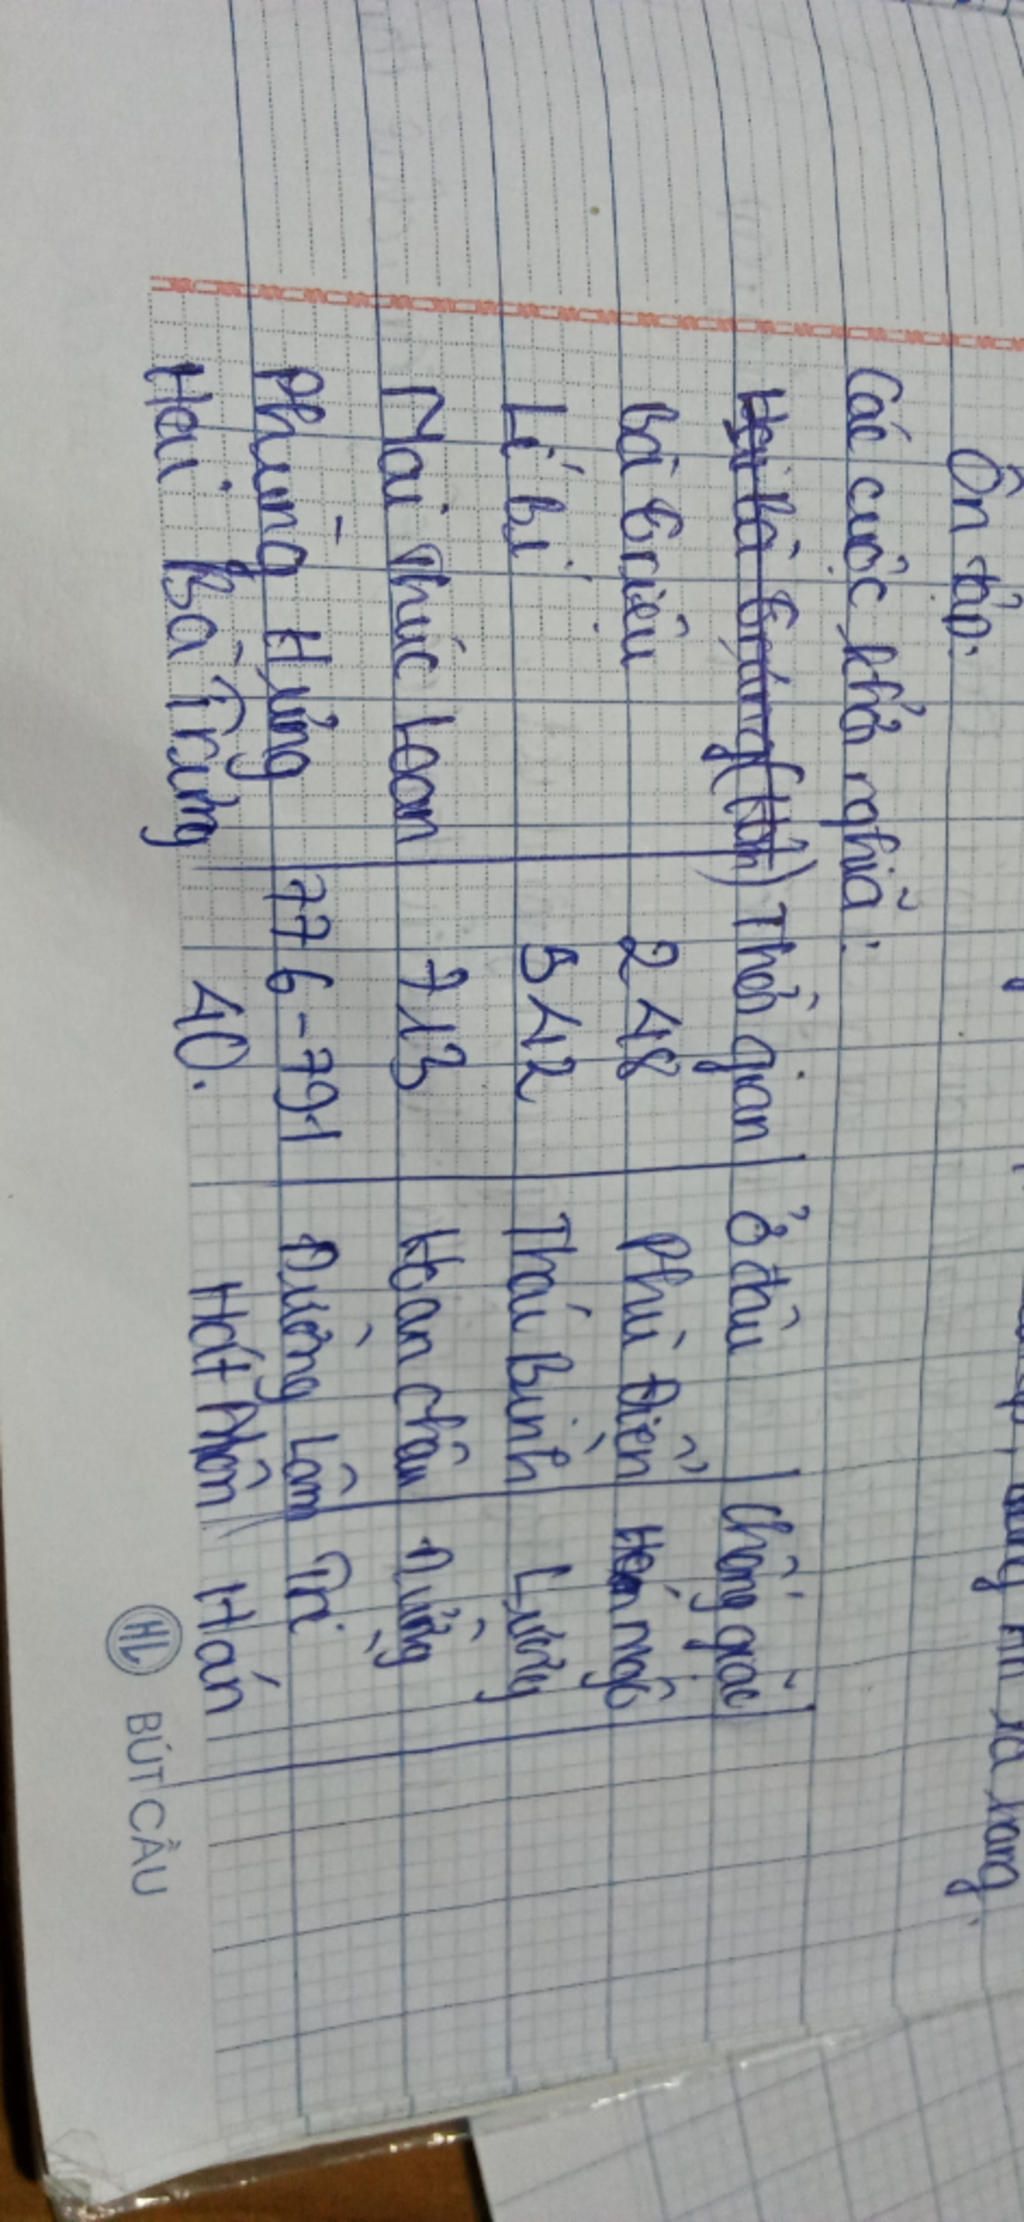 Ôn tập:
Các cuộc khởi nghĩa:
Hai Bà Trưng Thời gian Ở đâu Chống giặc
Bà Triệu 248 Phú Điền ngô
Lí Bí 542 Thái Bình Lương
Mai Thúc Loan 713 Hoan Châu Đường
Phùng Hưng 776-791 Đường Lâm
Hai Bà Trưng 40. Hát Môn Hán
HL BÚT CẦU